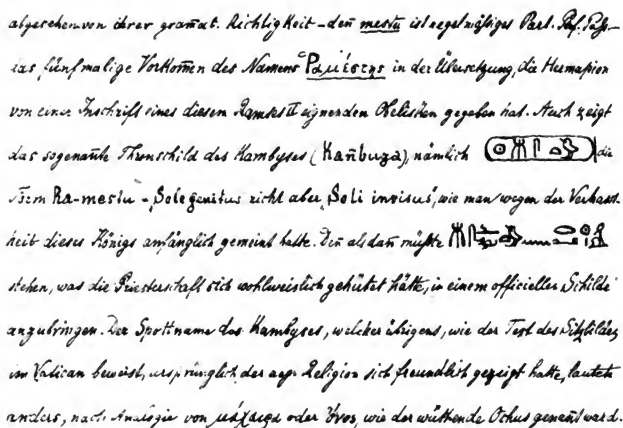 abgesehen von ihrer gram̄at. Richtigkeit – den̄ mestu ist regelmäßiges Part. Perf. Pass. –
das fünfmalige Vorkom̄en des Namens Ῥαμέστης in der Übersetzung, die Hermapion
von einer Inschrift eines diesem Ramses II eignenden Obelisken gegeben hat. Auch zeigt
das sogenan̄te Thronschild des Kambyses (Kan̄buza), nämlich 𓇳𓄟𓋴 die
Form Ra-mestu – „Sole genitus nicht aber „Soli invisus“, wie man wegen der Verhasst-
heit dieses Königs anfänglich gemeint hatte. Den̄ als dan̄ müßte
stehen, was die Priesterschaft sich wohlweislich gehütet hätte, in einem officiellen Schilde
anzubringen. Der Spottname des Kambyses, welcher übrigens, wie der Text des Sitzbildes
im Vatican beweist, ursprünglich der aegr. Religion sich freundlich gezeigt hatte, lautete
anders, nach Analogie von μάχαιρα oder Ὄνος, wie der wüthende Ochus genan̄t ward.